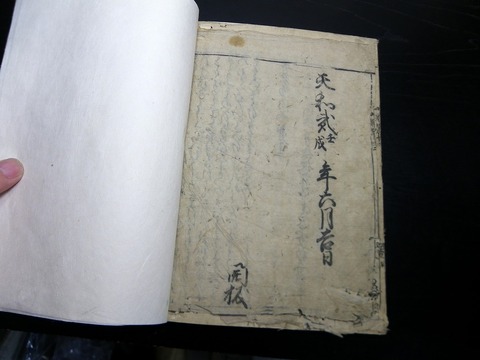 天和貳壬戌年六月吉日
開板